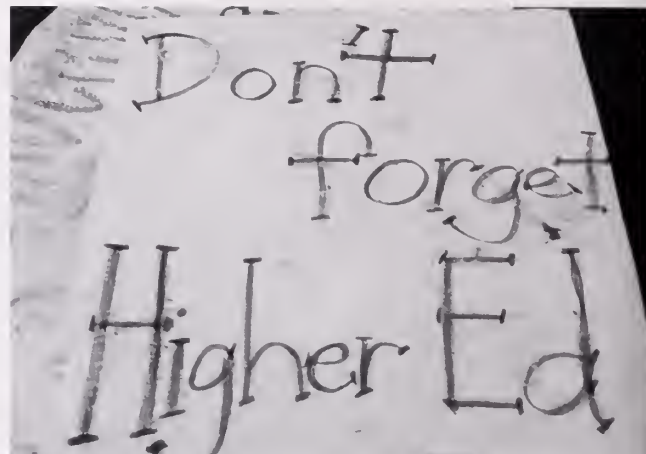 Don't
forget
Higher Ed